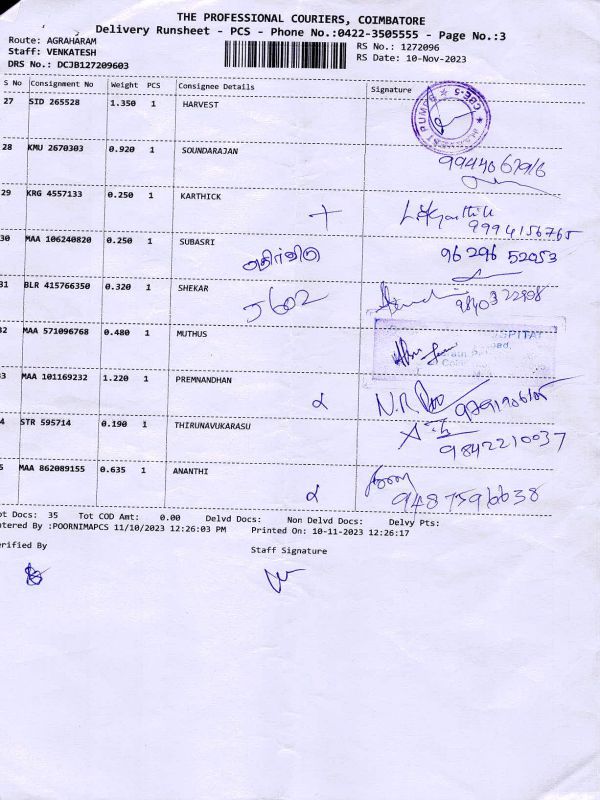 THE PROFESSIONAL COURIERS, COIMBATORE
Delivery Runsheet - PCS - Phone No.:0422-3505555 - Page No.:3
Route: AGRAHARAM
Staff: VENKATESH
DRS No.: DCJB127209603
RS No.: 1272096
RS Date: 10-Nov-2023
S No Consignment No Weight PCS Consignee Details Signature
27 SID 265528 1.350 1 HARVEST
28 KMU 2670303 0.920 1 SOUNDARAJAN
29 KRG 4557133 0.250 1 KARTHICK 9994156765
30 MAA 106240820 0.250 1 SUBASRI 96296 52053
எதிர்வீடு
31 BLR 415766350 0.320 1 SHEKAR
J602 9840322908
32 MAA 571096768 0.480 1 MUTHUS
33 MAA 101169232 1.220 1 PREMNANDHAN
N.R.
34 STR 595714 0.190 1 THIRUNAVUKARASU
9842210037
35 MAA 862089155 0.635 1 ANANTHI
9487596638
Tot Docs: 35 Tot COD Amt: 0.00 Delvd Docs: Non Delvd Docs: Delvy Pts:
Entered By :POORNIMAPCS 11/10/2023 12:26:03 PM Printed On: 10-11-2023 12:26:17
Verified By
Staff Signature